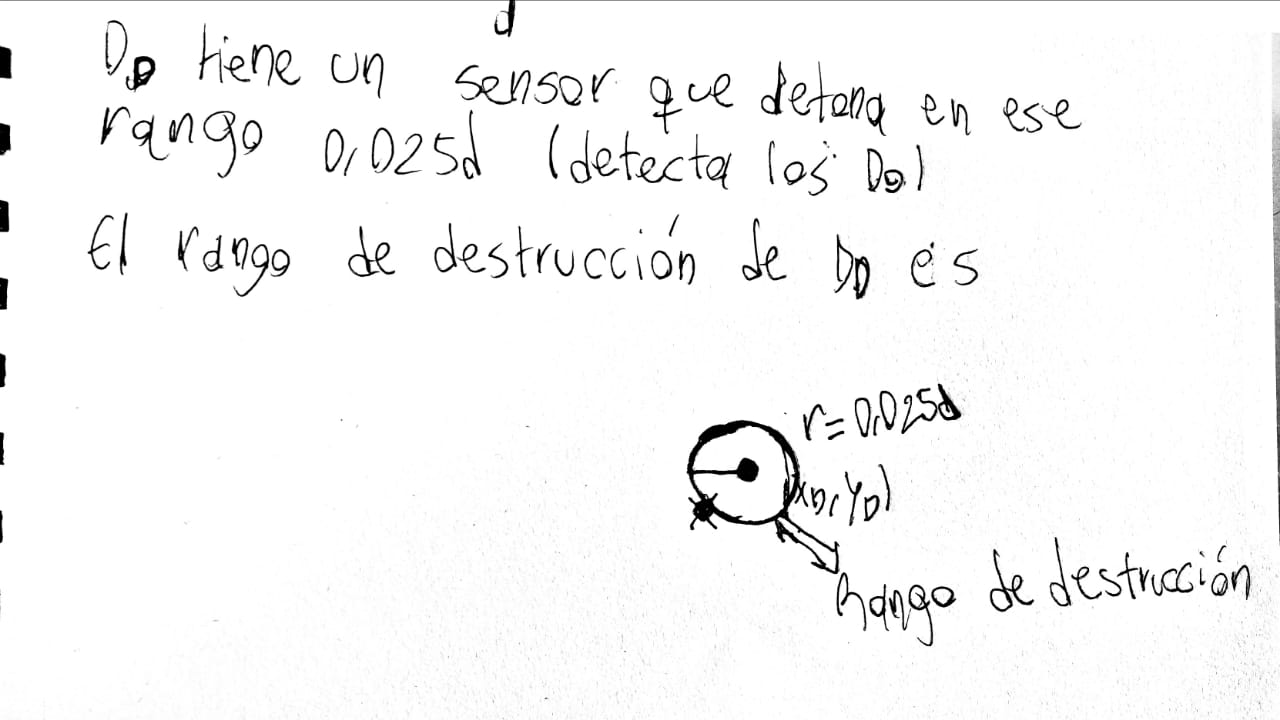 d
D_D tiene un sensor que detona en ese
rango 0,025d (detecta los D_O)
El rango de destrucción de D_D es
r=0,025d
(x_D, y_D)
Rango de destrucción